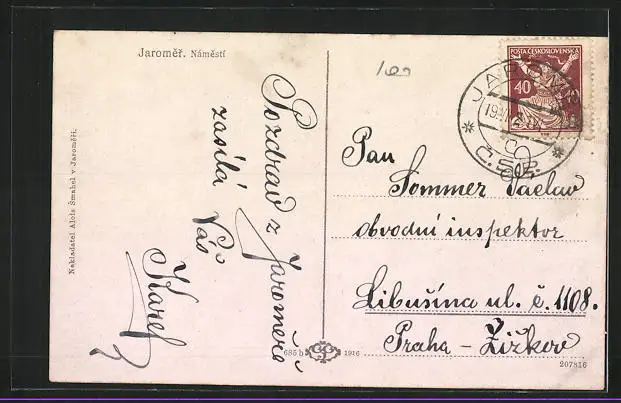 Jaroměř. Náměstí
Nakladatel Alois Šmahel v Jaroměři.
Pozdrav z Jaroměře
zasílá
Váš
Karel
685 b
1916
POSTA ČESKOSLOVENSKA
40
JAROM
19
Č.S.R.
Pan
Sommer Václav
obvodní inspektor
Libušina ul. č. 1108.
Praha - Žižkov
207816